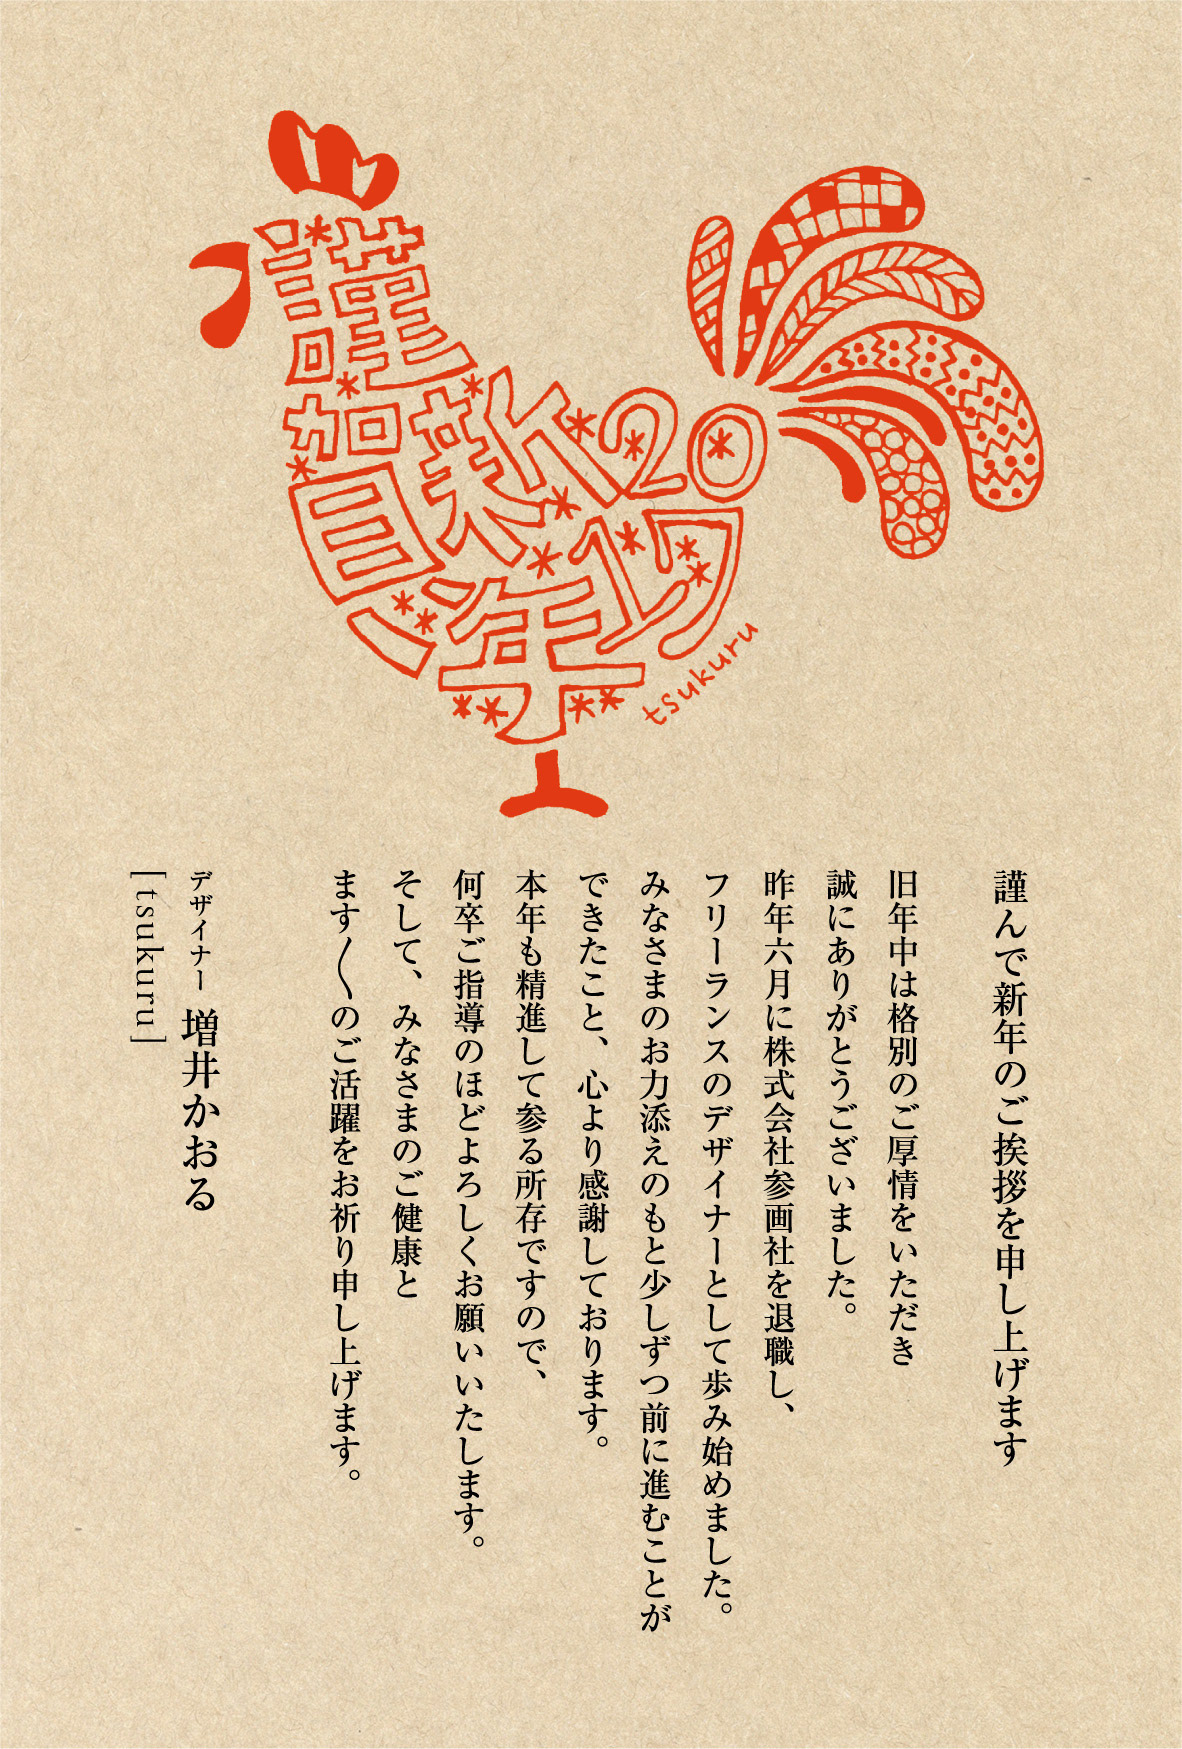 謹賀新年
2017
tsukuru
謹んで新年のご挨拶を申し上げます
旧年中は格別のご厚情をいただき
誠にありがとうございました。
昨年六月に株式会社参画社を退職し、
フリーランスのデザイナーとして歩み始めました。
みなさまのお力添えのもと少しずつ前に進むことが
できたこと、心より感謝しております。
本年も精進して参る所存ですので、
何卒ご指導のほどよろしくお願いいたします。
そして、みなさまのご健康と
ます〳〵のご活躍をお祈り申し上げます。
デザイナー 増井かおる
[tsukuru]